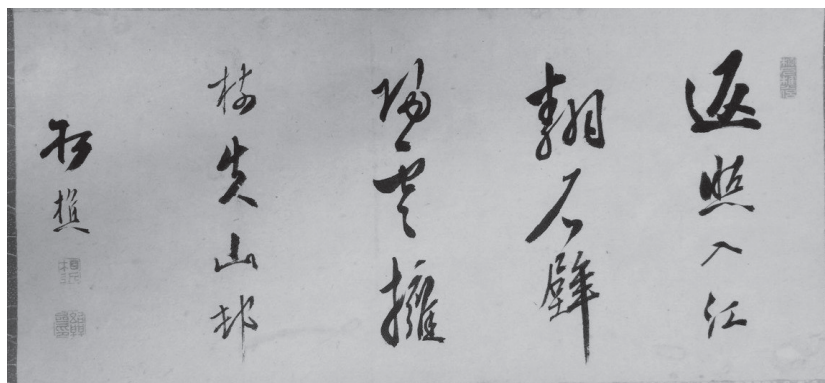 返照入江
翻石壁
歸雲擁
樹失山邨